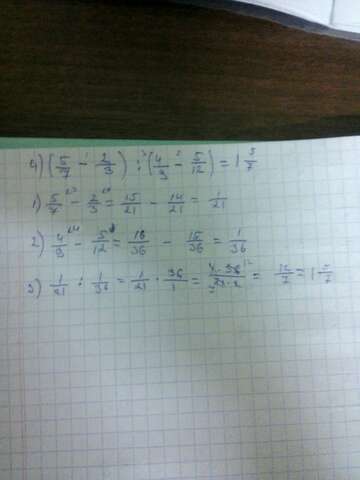 4) (5/7 - 2/3) : (4/9 - 5/12) = 1 5/7
1) 5/7 - 2/3 = 15/21 - 14/21 = 1/21
2) 4/9 - 5/12 = 16/36 - 15/36 = 1/36
3) 1/21 : 1/36 = 1/21 · 36/1 = = 12/7 = 1 5/7